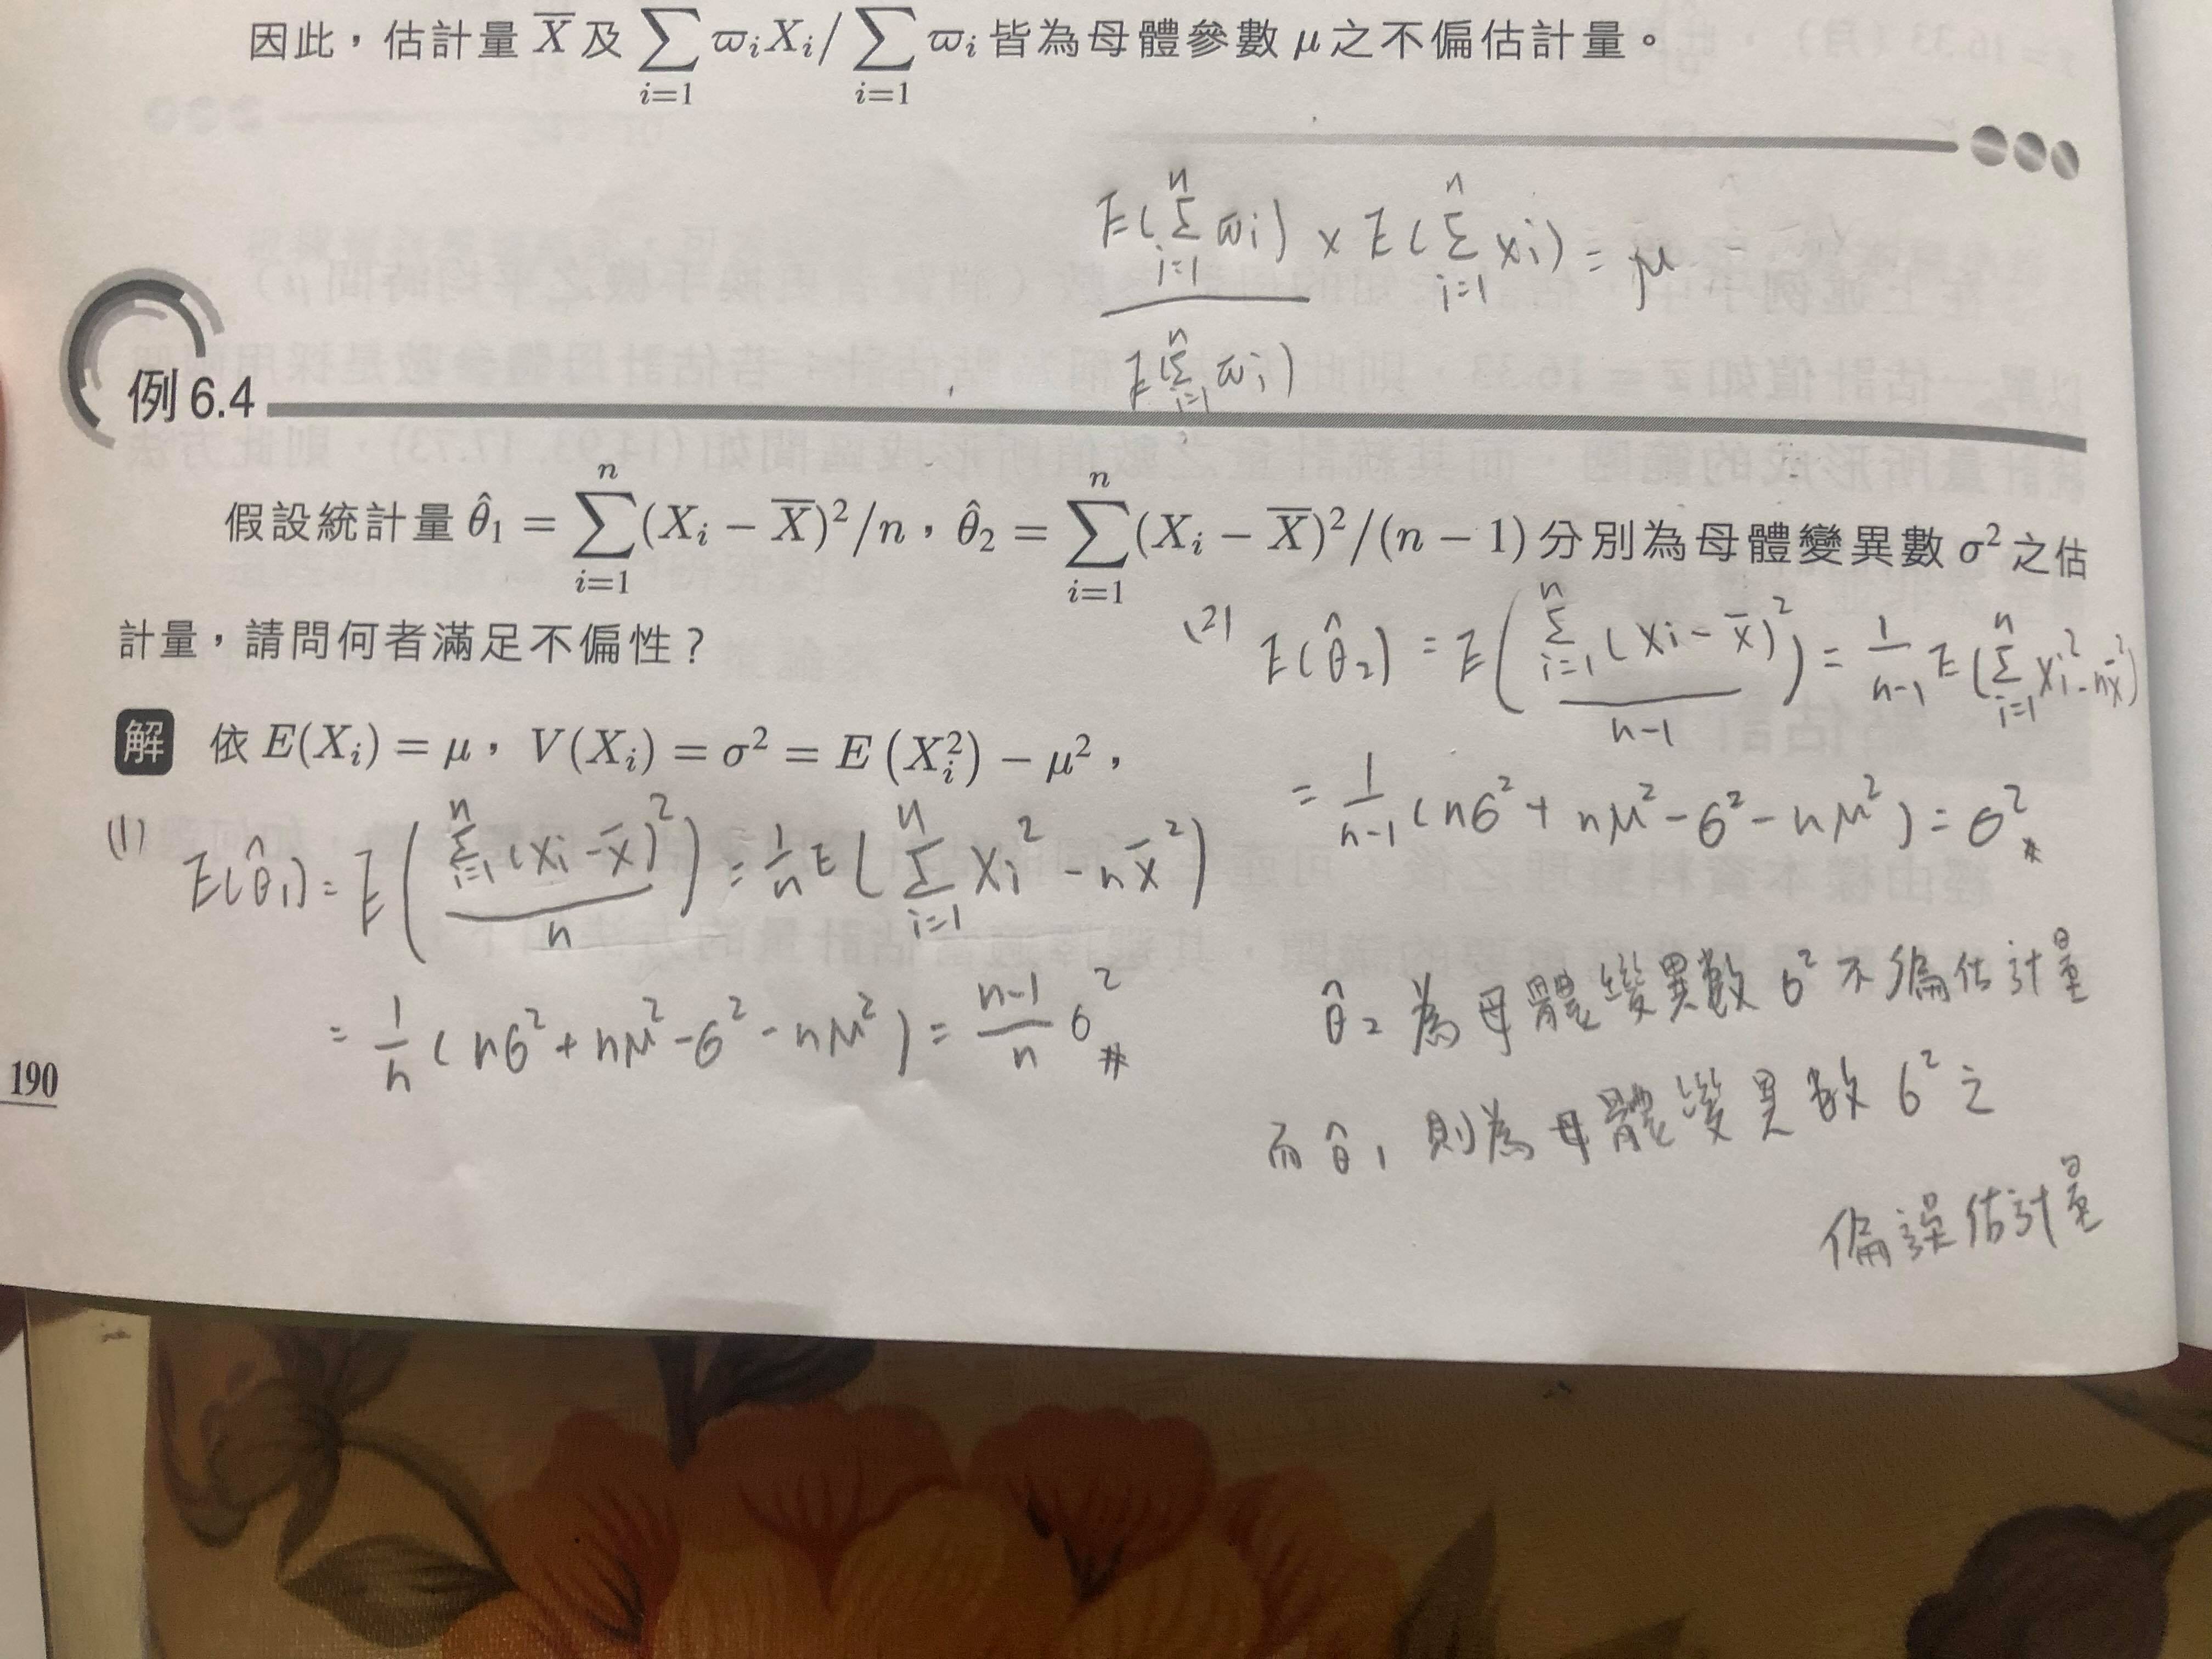 因此，估計量 X̄ 及 ∑_{i=1} ϖᵢXᵢ/ ∑_{i=1} ϖᵢ 皆為母體參數 μ 之不偏估計量。
E(∑_{i=1}^{n} ϖi) / E(∑_{i=1}^{n} ϖi) × E(∑_{i=1}^{n} xi) = μ
例 6.4
假設統計量 θ̂₁ = ∑_{i=1}^{n} (Xᵢ − X̄)²/n，θ̂₂ = ∑_{i=1}^{n} (Xᵢ − X̄)²/(n − 1) 分別為母體變異數 σ² 之估
計量，請問何者滿足不偏性？
解 依 E(Xᵢ) = μ，V(Xᵢ) = σ² = E(Xᵢ²) − μ²，
(1) E(θ̂₁) = E(∑_{i=1}^{n} (xi − x̄)² / n) = 1/n E(∑_{i=1}^{n} Xi² − nx̄²)
= 1/n (nσ² + nμ² − σ² − nμ²) = (n−1)/n σ² #
(2) E(θ̂₂) = E(∑_{i=1}^{n} (Xi − x̄)² / n−1) = 1/(n−1) E(∑_{i=1}^{n} Xi² − nx̄²)
= 1/(n−1) (nσ² + nμ² − σ² − nμ²) = σ² #
θ̂₂ 為母體變異數 σ² 不偏估計量
而 θ̂₁ 則為母體變異数 σ² 之
偏誤估計量
190